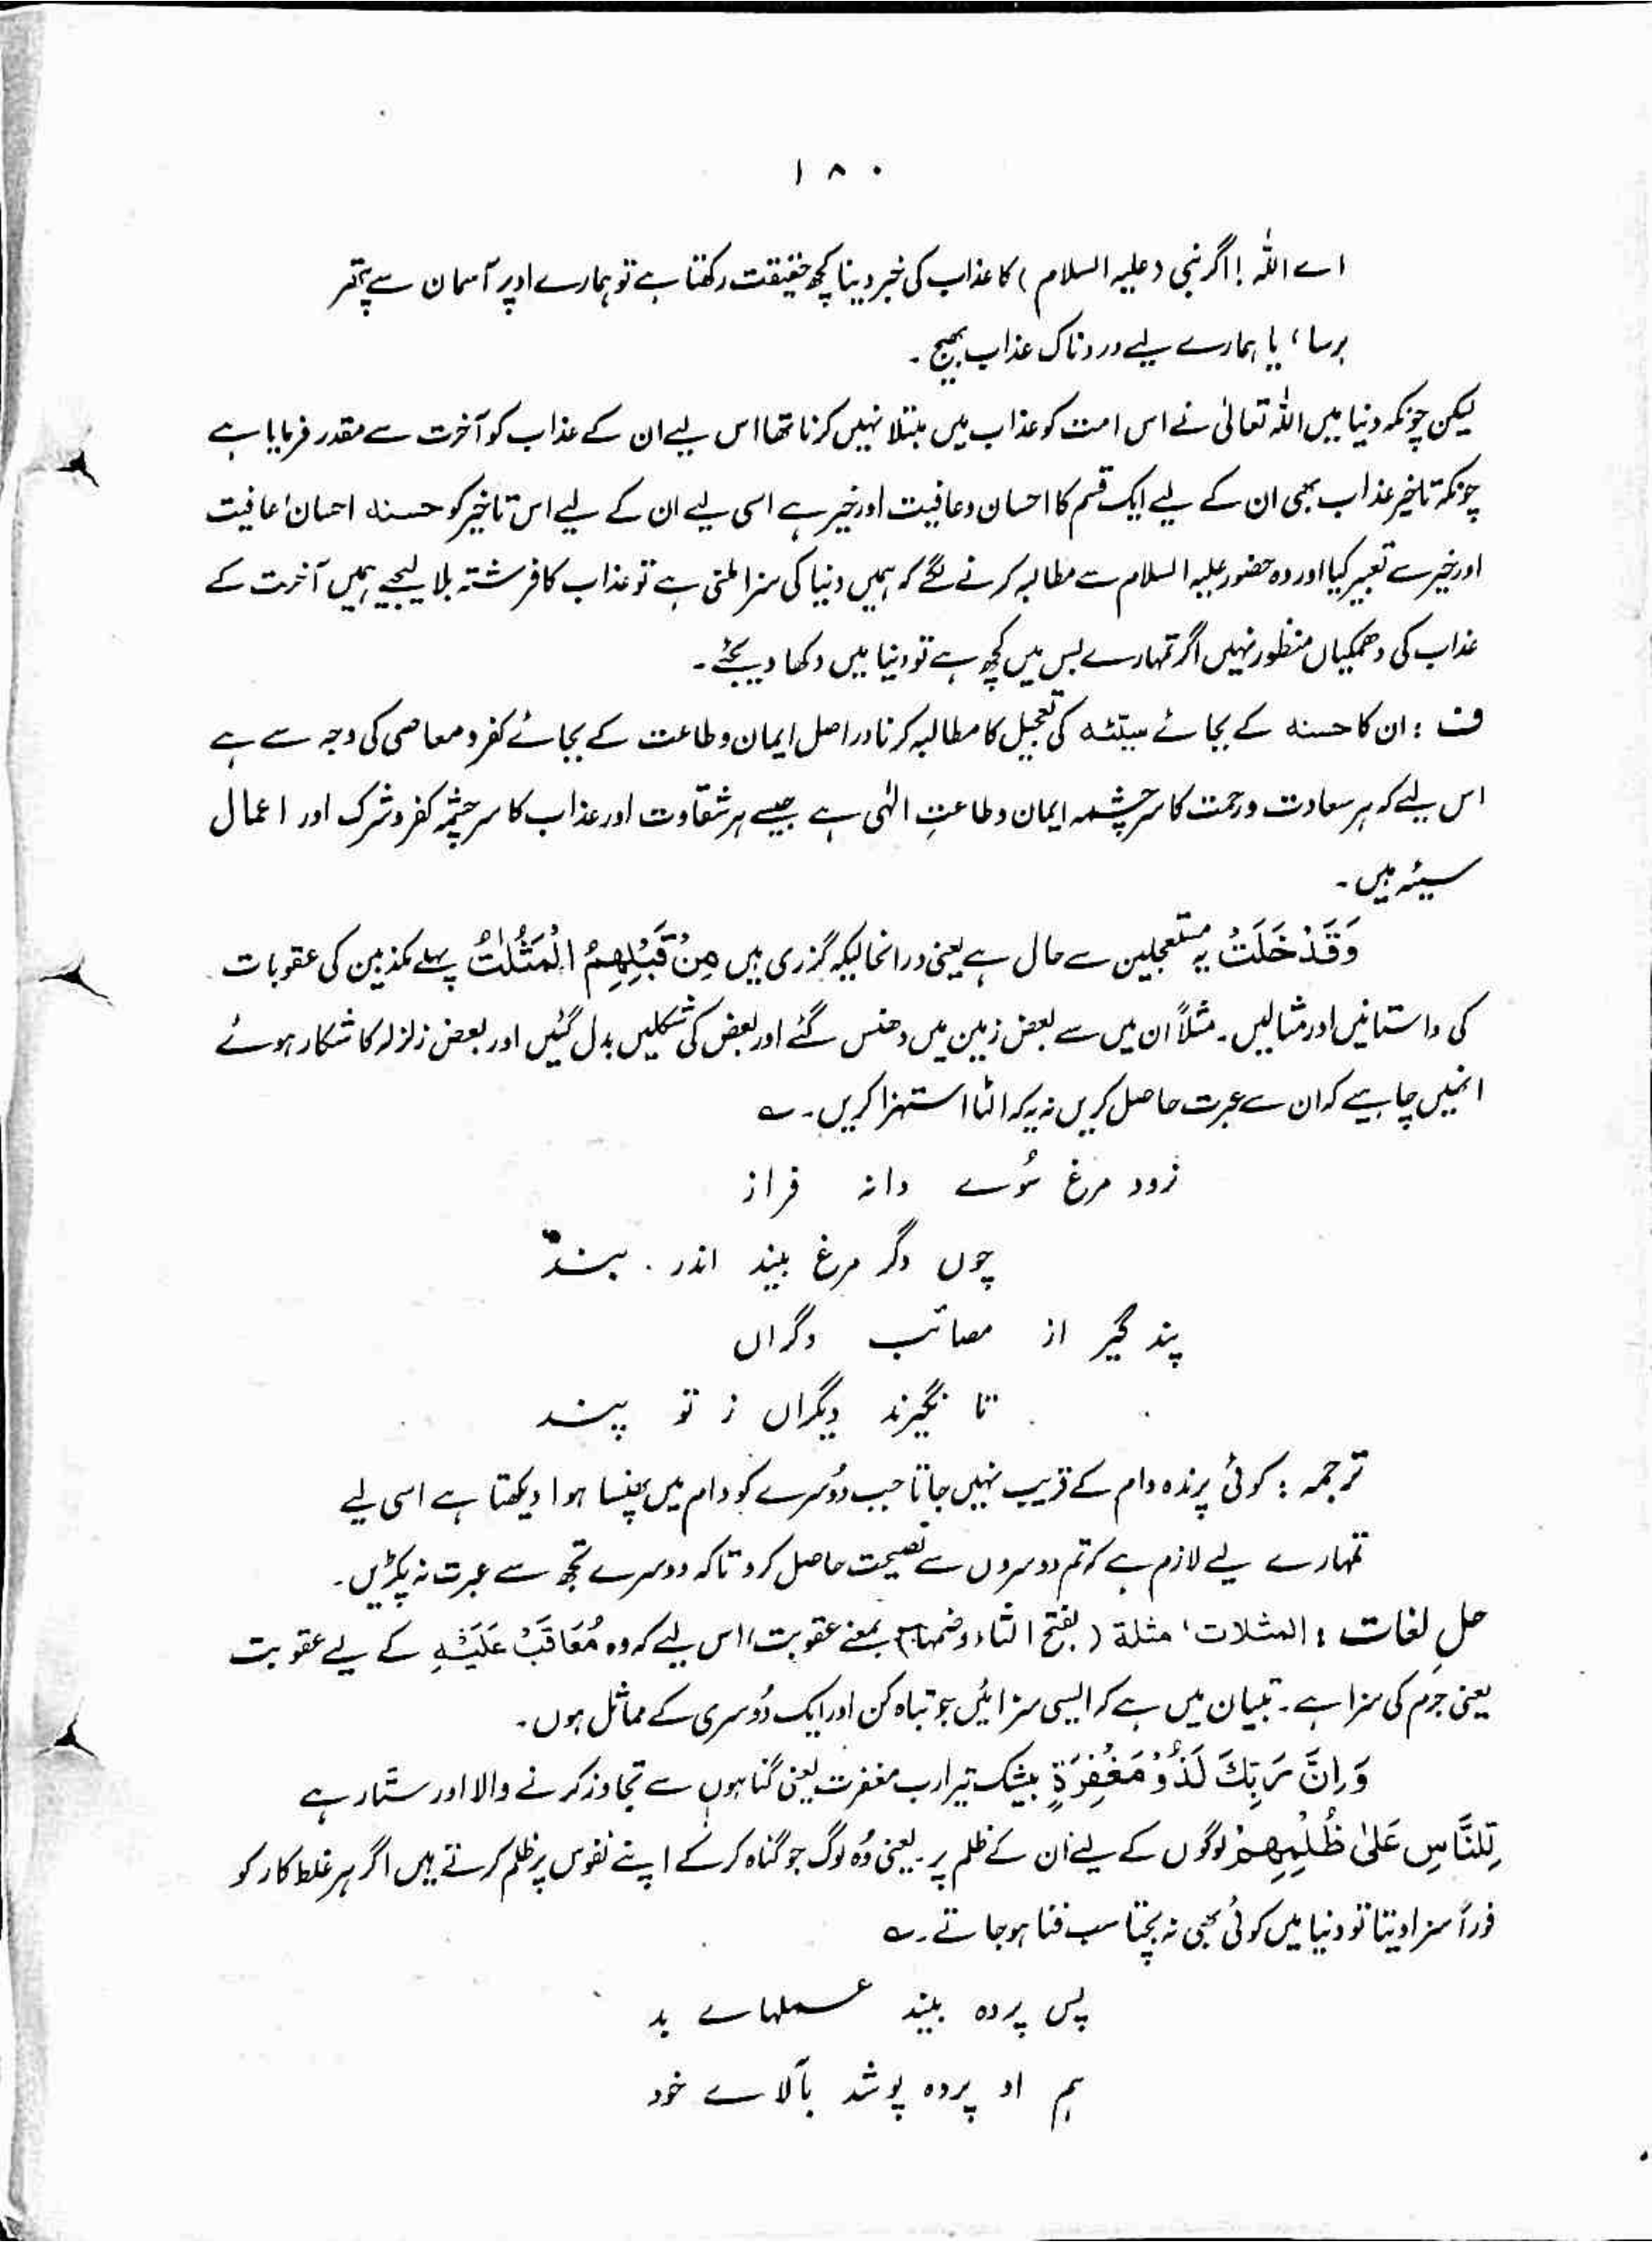 ۱۸۰
اے اللہ ! اگر نبی (علیہ السلام) کا عذاب کی خبر دینا کچھ حقیقت رکھتا ہے تو ہمارے اوپر آسمان سے پتھر
برسا، یا ہمارے لیے دردناک عذاب بھیج ۔
لیکن چونکہ دنیا میں اللہ تعالیٰ نے اس امت کو عذاب میں مبتلا نہیں کرنا تھا اس لیے ان کے عذاب کو آخرت سے مقدر فرمایا ہے
چونکہ تاخیر عذاب بھی ان کے لیے ایک قسم کا احسان و عافیت اور خیر ہے اسی لیے ان کے لیے اس تاخیر کو حسنہ احسان، عافیت
اور خیر سے تعبیر کیا اور وہ حضور علیہ السلام سے مطالبہ کرنے لگے کہ ہمیں دنیا کی سزا ملنی ہے تو عذاب کا فرشتہ بلا لیجیے ہمیں آخرت کے
عذاب کی دھمکیاں منظور نہیں اگر تمہارے بس میں کچھ ہے تو دنیا میں دکھا دیجئے ۔
ف : ان کا حسنہ کے بجائے سیئہ کی تعجیل کا مطالبہ کرنا دراصل ایمان و طاعت کے بجائے کفر و معاصی کی وجہ سے ہے
اس لیے کہ ہر سعادت و رحمت کا سرچشمہ ایمان و طاعتِ الٰہی ہے جیسے ہر شقاوت اور عذاب کا سرچشمہ کفر و شرک اور اعمال
سیئہ ہیں ۔
وَقَدْ خَلَتْ یہ مستعجلین سے حال ہے یعنی درانحالیکہ گزری ہیں مِنْ قَبْلِهِمُ الْمَثُلٰتُ پہلے مکذبین کی عقوبات
کی داستانیں اور مثالیں ۔ مثلاً ان میں سے بعض زمین میں دھنس گئے اور بعض کی شکلیں بدل گئیں اور بعض زلزلہ کا شکار ہوئے
انھیں چاہیے کہ ان سے عبرت حاصل کریں نہ یہ کہ الٹا استہزا کریں ۔ ؎
نرود مرغ سُوے دانہ فراز
چوں دگر مرغ بیند اندر بند
پند گیر از مصائب دگراں
تا نگیرند دیگراں ز تو پند
ترجمہ : کوئی پرندہ دام کے قریب نہیں جاتا جب دُوسرے کو دام میں پھنسا ہوا دیکھتا ہے اسی لیے
تمہارے لیے لازم ہے کہ تم دوسروں سے نصیحت حاصل کرو تاکہ دوسرے تجھ سے عبرت نہ پکڑیں ۔
حل لغات : المثلات، مثلة (بفتح الثاء و ضمہا) بمعنے عقوبت، اس لیے کہ وہ مُعَاقَبْ عَلَیْہِ کے لیے عقوبت
یعنی جُرم کی سزا ہے ۔ تبیان میں ہے کہ ایسی سزائیں جو تباہ کن اور ایک دُوسری کے مماثل ہوں ۔
وَاِنَّ رَبَّكَ لَذُوْ مَغْفِرَةٍ بیشک تیرا رب مغفرت یعنی گناہوں سے تجاوز کرنے والا اور ستّار ہے
لِّلنَّاسِ عَلٰى ظُلْمِهِمْ لوگوں کے لیے ان کے ظلم پر ۔ یعنی وُہ لوگ جو گناہ کر کے اپنے نفوس پر ظلم کرتے ہیں اگر ہر غلط کار کو
فوراً سزا دیتا تو دنیا میں کوئی بھی نہ بچتا سب فنا ہو جاتے ۔ ؎
پس پردہ بیند عملہاے بد
ہم او پردہ پوشد بآلاے خود